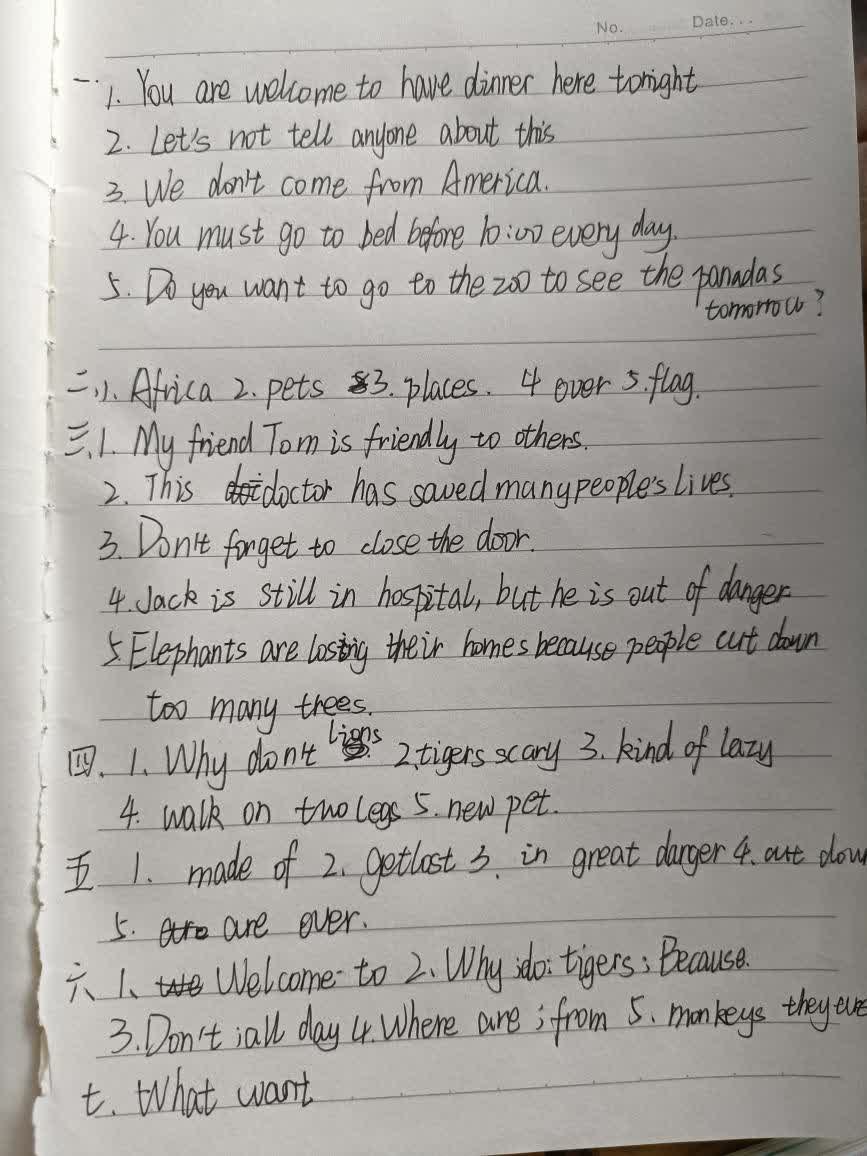 No. Date...
一. 1. You are welcome to have dinner here tonight
2. Let's not tell anyone about this
3. We don't come from America.
4. You must go to bed before 10:00 every day.
5. Do you want to go to the zoo to see the panadas
tomorrow?
二、1. Africa 2. pets 3. places. 4 over 5. flag.
三、1. My friend Tom is friendly to others.
2. This doctor has saved many people's lives.
3. Don't forget to close the door.
4. Jack is still in hospital, but he is out of danger
5. Elephants are losing their homes because people cut down
too many threes.
四. 1. Why don't lions 2. tigers scary 3. kind of lazy
4. walk on two legs 5. new pet.
五 1. made of 2. get lost 3. in great danger 4. cut down
5. are over.
六、1、Welcome to 2、Why ; do ; tigers ; Because.
3. Don't ; all day 4. Where are ; from 5. monkeys they are
七. What want